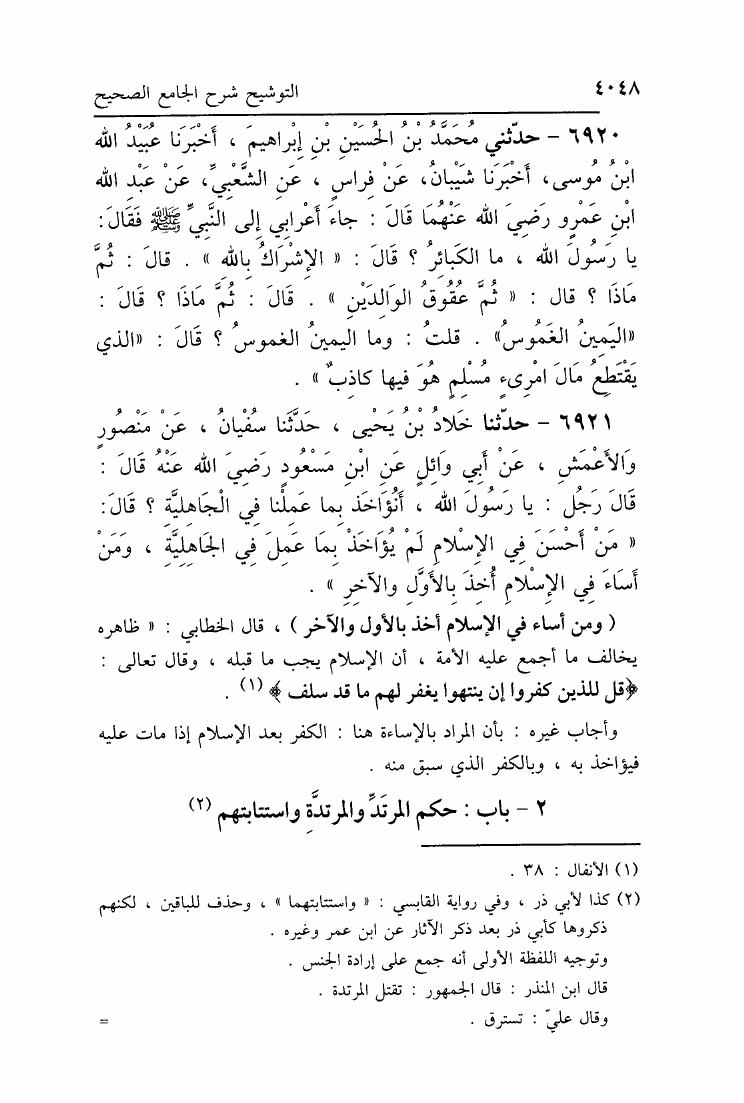 ٤٠٤٨ التوشيح شرح الجامع الصحيح
٦٩٢٠ - حدّثني مُحَمَّدُ بْنُ الحُسَيْنِ بْنِ إِبراهيمَ ، أَخْبَرَنَا عُبَيْدُ الله
ابْنُ مُوسى، أَخْبَرَنا شَيْبانُ، عَنْ فِراسٍ ، عَنِ الشَّعْبِيِّ، عَنْ عَبْدِ الله
ابنِ عَمْرٍو رَضِيَ الله عَنْهُمَا قَالَ : جاءَ أَعْرابِي إِلى النَّبِيِّ ﷺ فَقَالَ:
يا رَسُولَ الله ، ما الكَبائِرُ ؟ قَالَ : « الإِشْرَاكُ بِالله » . قالَ : ثُمَّ
مَاذَا ؟ قال : « ثُمَّ عُقُوقُ الوَالِدَيْنِ » . قَالَ : ثُمَّ مَاذَا ؟ قَالَ :
«اليَمِينُ الغَمُوسُ» . قلتُ : وما اليمينُ الغموسُ ؟ قَالَ : «الذي
يَقْتَطِعُ مَالَ امْرِىءٍ مُسْلِمٍ هُوَ فيها كاذِبٌ » .
٦٩٢١ - حدّثنا خَلادُ بْنُ يَحْيى ، حَدَّثَنا سُفْيانُ ، عَنْ مَنْصُورٍ
وَالأَعْمَشِ ، عَنْ أَبي وَائِلٍ عَنِ ابْنِ مَسْعُودٍ رَضِيَ الله عَنْهُ قَالَ :
قَالَ رَجُل : يا رَسُولَ الله ، أَنُؤَاخَذ بِما عَمِلْنا فِي الْجَاهِليَّةِ ؟ قَالَ:
« مَنْ أَحْسَنَ فِي الإِسْلامِ لَمْ يُؤَاخَذْ بِمَا عَمِلَ فِي الجَاهِلِيَّةِ ، وَمَنْ
أَسَاءَ فِي الإِسْلامِ أُخِذَ بِالأَوَّلِ والآخِرِ » .
( ومن أساء في الإسلام أخذ بالأول والآخر ) ، قال الخطابي : « ظاهره
يخالف ما أجمع عليه الأمة ، أن الإسلام يجب ما قبله ، وقال تعالى :
﴿قل للذين كفروا إن ينتهوا يغفر لهم ما قد سلف ﴾(١) .
وأجاب غيره : بأن المراد بالإساءة هنا : الكفر بعد الإسلام إذا مات عليه
فيؤاخذ به ، وبالكفر الذي سبق منه .
٢ - باب : حكم المرتَدِّ والمرتدَّةِ واستتابتهم (٢)
(١) الأنفال : ٣٨ .
(٢) كذا لأبي ذر ، وفي رواية القابسي : « واستتابتهما » ، وحذف للباقين ، لكنهم
ذكروها كأبي ذر بعد ذكر الآثار عن ابن عمر وغيره .
وتوجيه اللفظة الأولى أنه جمع على إرادة الجنس .
قال ابن المنذر : قال الجمهور : تقتل المرتدة .
وقال عليّ : تسترق . =